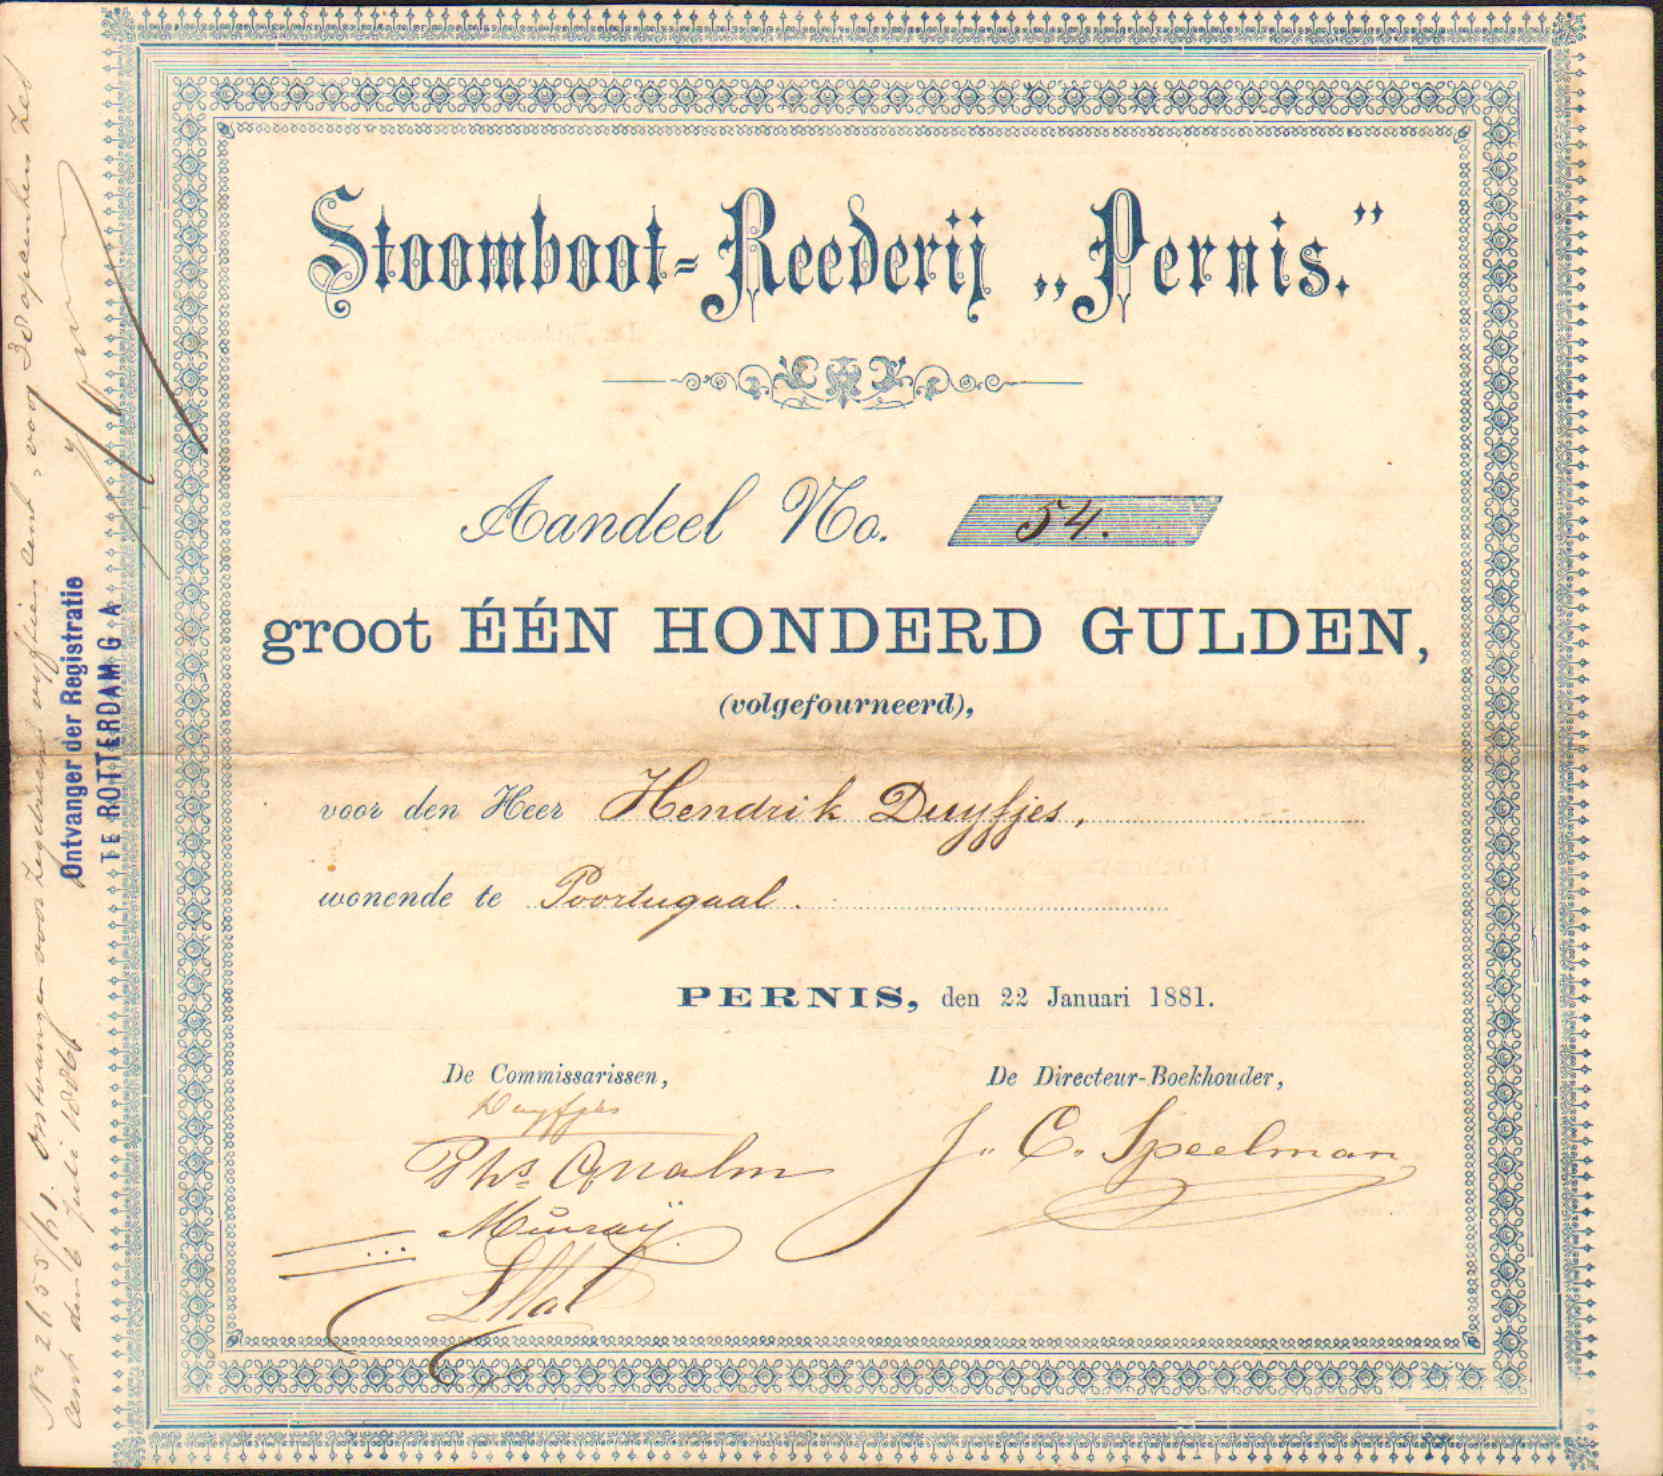 Stoomboot-Reederij „Pernis.”
Aandeel No. 54.
groot ÉÉN HONDERD GULDEN,
(volgefourneerd),
voor den Heer Hendrik Duyfjes,
wonende te Poortugaal.
PERNIS, den 22 Januari 1881.
De Commissarissen,
De Directeur-Boekhouder,
Duyfjes
J. C. Speelman
Phs. Qualm
Murray
No 2655/61. Ontvangen voor zegelrecht vyftien cent, voor 38 opcenten zes
cent den 6 Juli 1886
Ontvanger der Registratie
TE ROTTERDAM G A